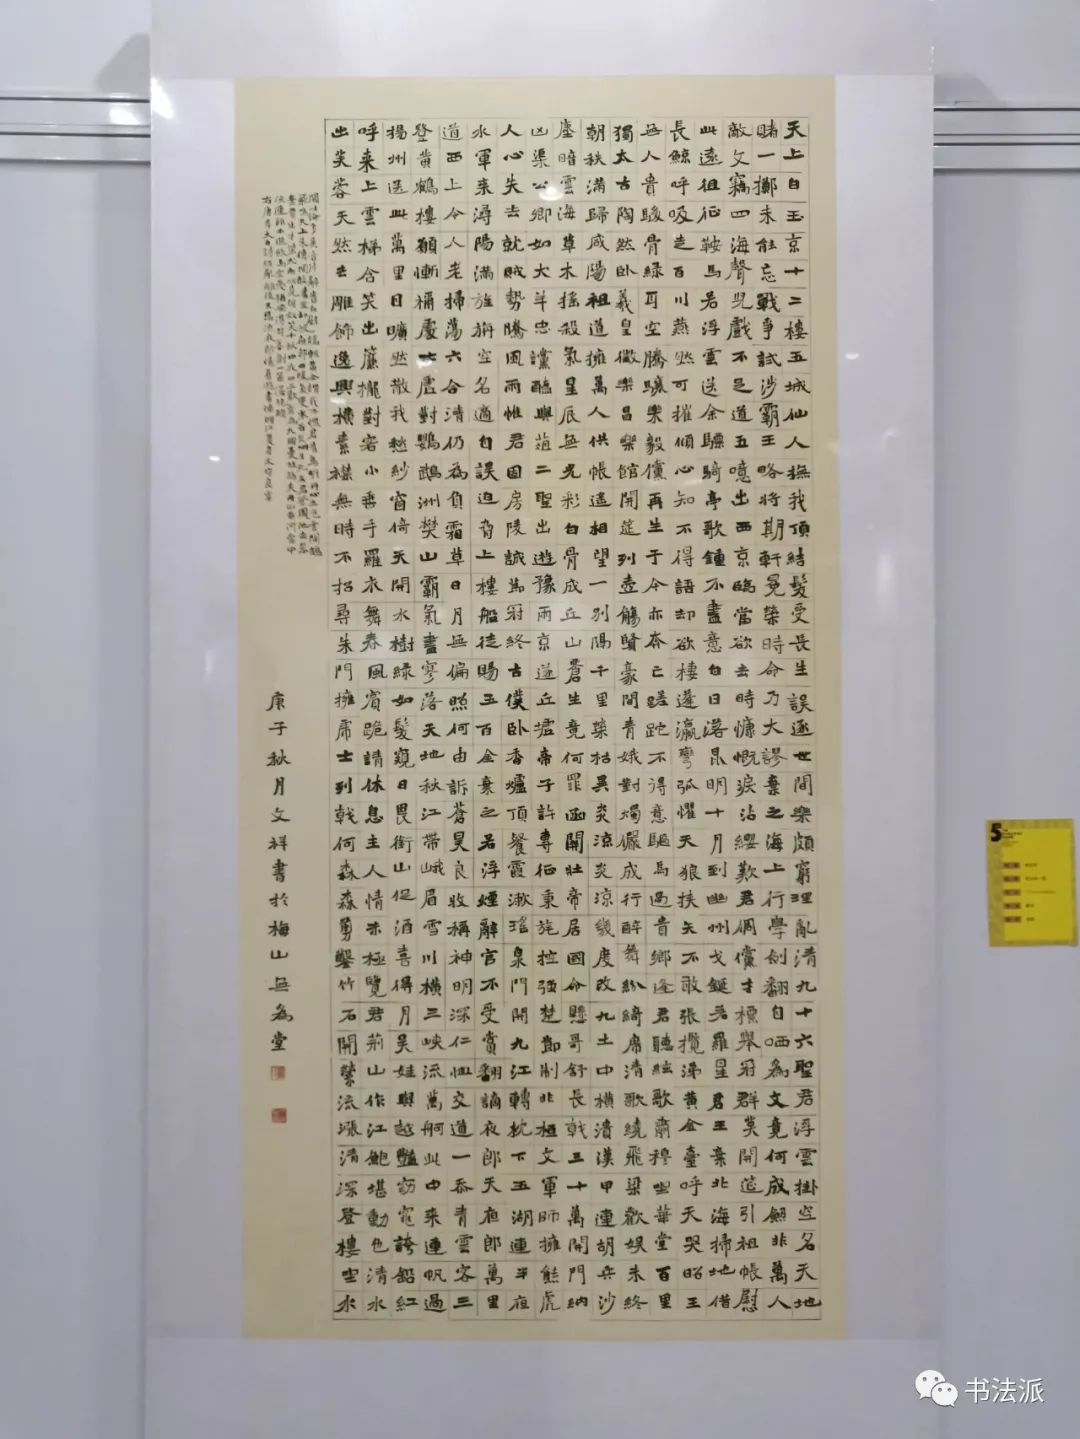 天上白玉京十二樓五城仙人撫我頂結髮受長生誤逐世間樂頗窮理亂清九十六聖君浮雲掛空名天地
賭一擲未能忘戰爭試涉霸王略將期軒冕榮時命乃大謬棄之海上行學劍翻自哂為文竟何成劍非萬人
敵文竊四海聲兒戲不足道五噫出西京臨當欲去時慷慨淚沾纓歎君倜儻才標舉冠群英開筵引祖帳慰
此遠徂征鞍馬若浮雲送余驃騎亭歌鐘不盡意白日落昆明十月到幽州戈鋋若羅星君王棄北海掃地借
長鯨呼吸走百川燕然可摧傾心知不得語却欲棲蓬瀛彎弧懼天狼挾矢不敢張攬涕黃金臺呼天哭昭王
無人貴駿骨綠耳空騰驤樂毅儻再生于今亦奔亡蹉跎不得意驅馬過貴鄉逢君聽絃歌肅穆坐華堂百里
獨太古陶然卧羲皇徵樂昌樂館開筵列壺觴賢豪間青娥對燭儼成行醉舞紛綺席清歌繞飛梁歡娛未終
朝秩滿歸咸陽祖道擁萬人供帳遙相望一別隔千里榮枯異炎涼炎涼幾度改九土中橫潰漢甲連胡兵沙
塵暗雲海草木搖殺氣星辰無光彩白骨成丘山蒼生竟何罪函關壯帝居國命懸哥舒長戟三十萬開門納
凶渠公卿如犬羊忠讜醢與葅二聖出遊豫兩京遂丘墟帝子許專征秉旄控強楚節制非桓文軍師擁熊虎
人心失去就賊勢騰風雨惟君固房陵誠節冠終古僕卧香爐頂餐霞漱瑤泉門開九江轉枕下五湖連半夜
水軍來潯陽滿旌旃空名適自誤迫脅上樓船徒賜五百金棄之若浮煙辭官不受賞翻謫夜郎天夜郎萬里
道西上令人老掃蕩六合清仍為負霜草日月無偏照何由訴蒼昊良牧稱神明深仁恤交道一忝青雲客三
登黃鶴樓顧慚禰處士虛對鸚鵡洲樊山霸氣盡寥落天地秋江帶峨眉雪川橫三峽流萬舸此中來連帆過
揚州送此萬里目曠然散我愁紗窗倚天開水樹綠如髮窺日畏銜山促酒喜得月吳娃與越艷窈窕誇鉛紅
呼來上雲梯含笑出簾櫳對客小垂手羅衣舞春風賓跪請休息主人情未極覽君荊山作江鮑堪動色清水
出芙蓉天然去雕飾逸興橫素襟無時不招尋朱門擁虎士列戟何森森剪鑿竹石開縈流漲清深登樓坐水
右唐李太白詩經亂離後天恩流夜郎憶舊遊書懷贈江夏韋太守良宰
庚子秋月文祥書於梅山無為堂
5
书法派